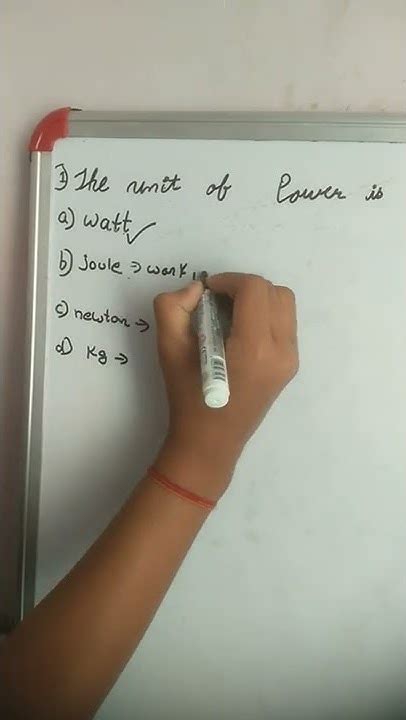 1) The unit of Power is
a) watt ✓
b) Joule → work
c) newton →
d) kg →